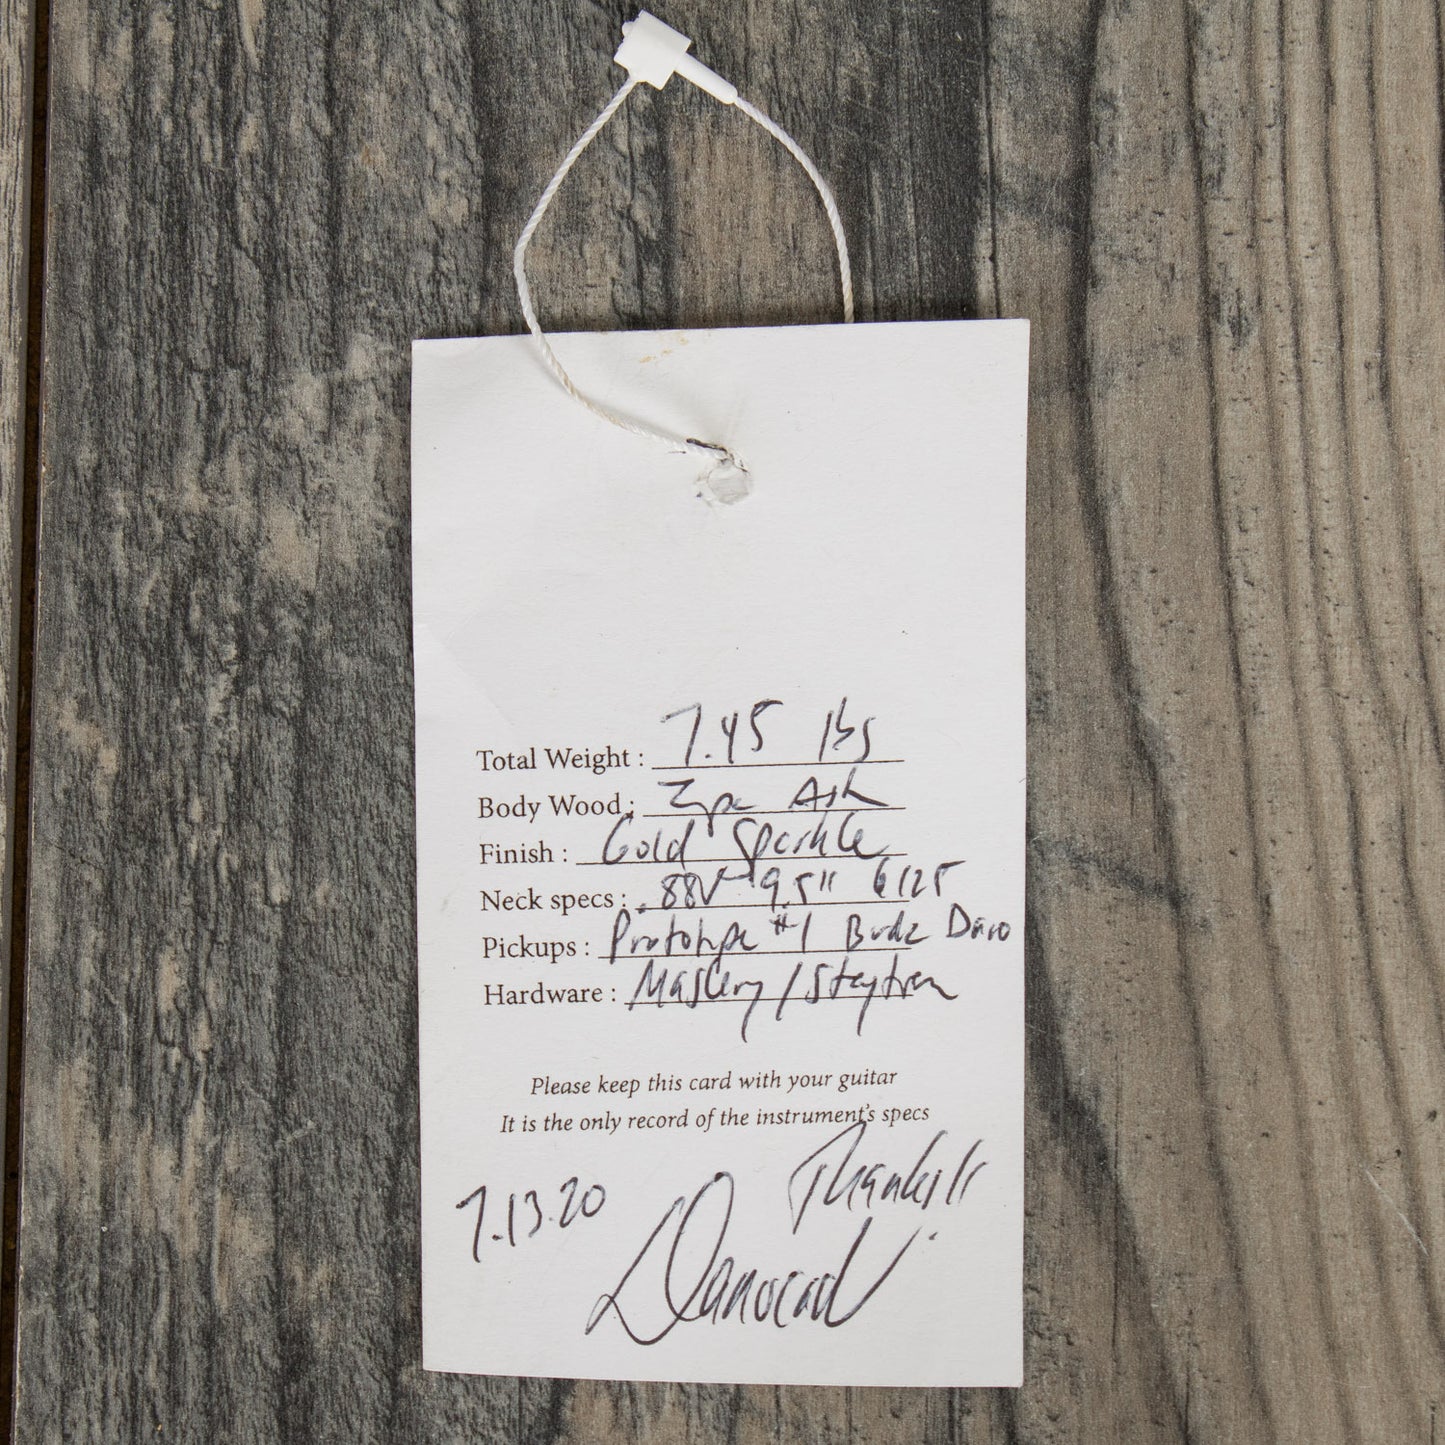 Total Weight : 7.45 lbs
Body Wood : 2pc Ash
Finish : Gold Sparkle
Neck specs : .88V 9.5" 6125
Pickups : Prototype #1
Hardware : Mastery / Staytrem
Please keep this card with your guitar
It is the only record of the instrument's specs
Thanks!!
7.13.20
Danocaster